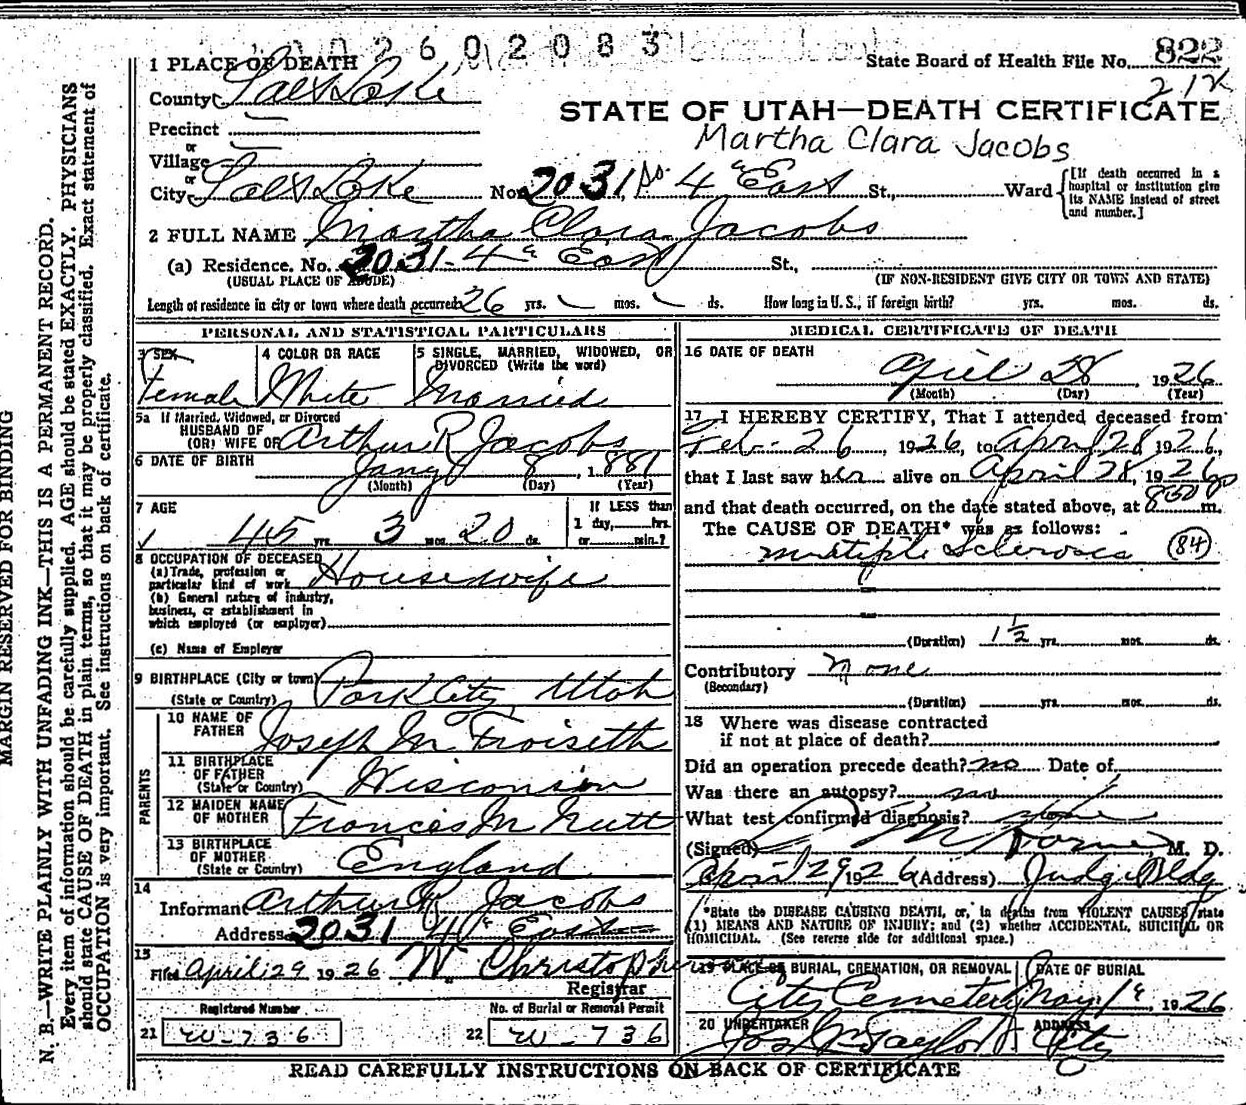 2602083
State Board of Health File No. 822
212
1 PLACE OF DEATH
County Salt Lake
STATE OF UTAH—DEATH CERTIFICATE
Martha Clara Jacobs
Precinct
or
Village
or
City Salt Lake No. 2031 So. 4" East St., Ward
[If death occurred in a hospital or institution give its NAME instead of street and number.]
2 FULL NAME Martha Clara Jacobs
(a) Residence. No. 2031 - 4" East St.,
(USUAL PLACE OF ABODE) (IF NON-RESIDENT GIVE CITY OR TOWN AND STATE)
Length of residence in city or town where death occurred 26 yrs. mos. ds. How long in U. S., if foreign birth? yrs. mos. ds.
PERSONAL AND STATISTICAL PARTICULARS
3 SEX
Female
4 COLOR OR RACE
White
5 SINGLE, MARRIED, WIDOWED, OR DIVORCED (Write the word)
Married
5a If Married, Widowed, or Divorced
HUSBAND OF
(OR) WIFE OF Arthur R Jacobs
6 DATE OF BIRTH Jany 8, 1881
(Month) (Day) (Year)
7 AGE
45 yrs. 3 mos. 20 ds.
If LESS than
1 day, hrs.
or min.?
8 OCCUPATION OF DECEASED
(a) Trade, profession or
particular kind of work Housewife
(b) General nature of industry,
business, or establishment in
which employed (or employer)
(c) Name of Employer
9 BIRTHPLACE (City or town)
(State or Country) Park City, Utah
PARENTS
10 NAME OF
FATHER Joseph M Froiseth
11 BIRTHPLACE
OF FATHER
(State or Country) Wisconsin
12 MAIDEN NAME
OF MOTHER Frances M Nutt
13 BIRTHPLACE
OF MOTHER
(State or Country) England
14
Informant Arthur R Jacobs
Address 2031 4" East
15
Filed April 29 1926
Registrar
Registered Number
21 W-736
No. of Burial or Removal Permit
22 W-736
MEDICAL CERTIFICATE OF DEATH
16 DATE OF DEATH
April 28, 1926
(Month) (Day) (Year)
17 I HEREBY CERTIFY, That I attended deceased from
Feb - 26, 1926, to April 28 1926,
that I last saw her alive on April 28, 1926
and that death occurred, on the date stated above, at 8:50 p m.
The CAUSE OF DEATH* was as follows:
Multiple Sclerosis (84)
(Duration) 1½ yrs. mos. ds.
Contributory None
(Secondary)
(Duration) yrs. mos. ds.
18 Where was disease contracted
if not at place of death?
Did an operation precede death? no Date of
Was there an autopsy? no
What test confirmed diagnosis?
(Signed) M. D.
April 29, 1926 (Address) Judge Bldg
*State the DISEASE CAUSING DEATH, or, in deaths from VIOLENT CAUSES, state
(1) MEANS AND NATURE OF INJURY; and (2) whether ACCIDENTAL, SUICIDAL OR
HOMICIDAL. (See reverse side for additional space.)
19 PLACE OF BURIAL, CREMATION, OR REMOVAL
City Cemetery
DATE OF BURIAL
May 1", 1926
20 UNDERTAKER
Jos Wm Taylor
ADDRESS
City
READ CAREFULLY INSTRUCTIONS ON BACK OF CERTIFICATE
MARGIN RESERVED FOR BINDING
N. B.—WRITE PLAINLY WITH UNFADING INK—THIS IS A PERMANENT RECORD.
Every item of information should be carefully supplied. AGE should be stated EXACTLY. PHYSICIANS
should state CAUSE OF DEATH in plain terms, so that it may be properly classified. Exact statement of
OCCUPATION is very important. See instructions on back of certificate.